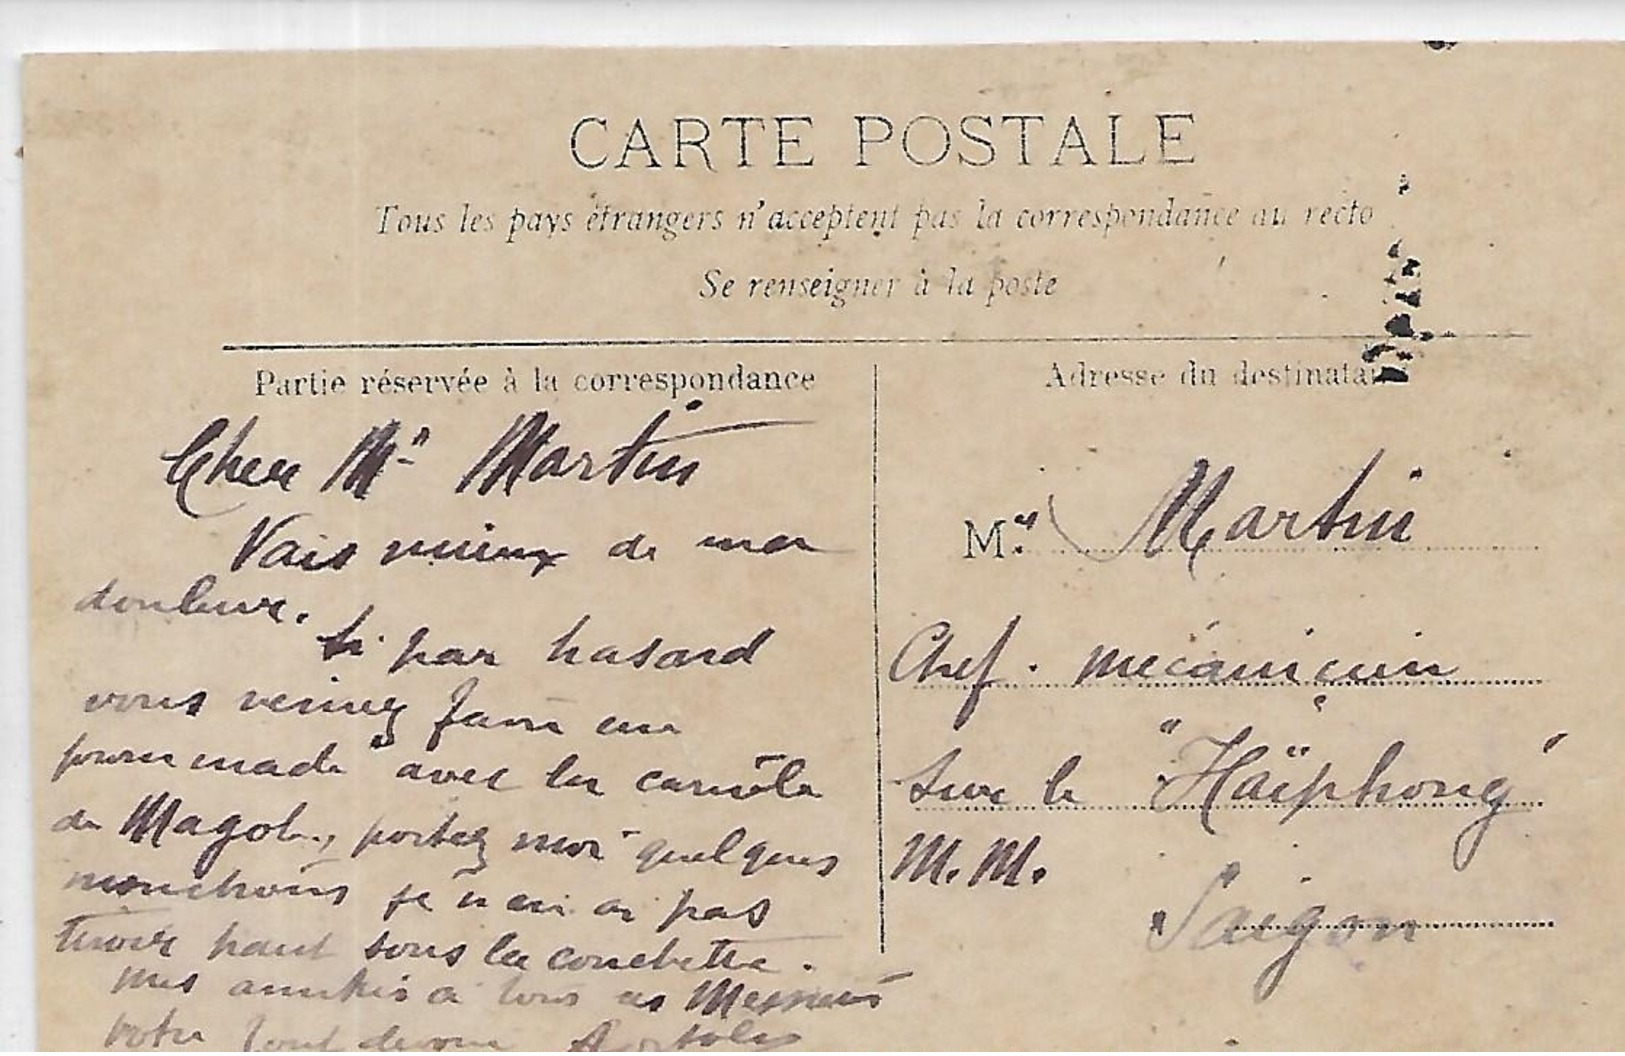 CARTE POSTALE
Tous les pays étrangers n'acceptent pas la correspondance au recto
Se renseigner à la poste
Partie réservée à la correspondance
Cher Mr Martin
Vais mieux de ma
douleur.
Si par hasard
vous veniez faire une
promenade avec la
de Magot, portez moi quelques
mouchoirs je n'en ai pas
tiroir haut sous la couchette.
mes amitiés à tous ces Messieurs
Votre tout dévoué
Adresse du destinatai
Mr Martin
Chef mécanicien
Sur le "Haïphong"
M.M.
Saigon